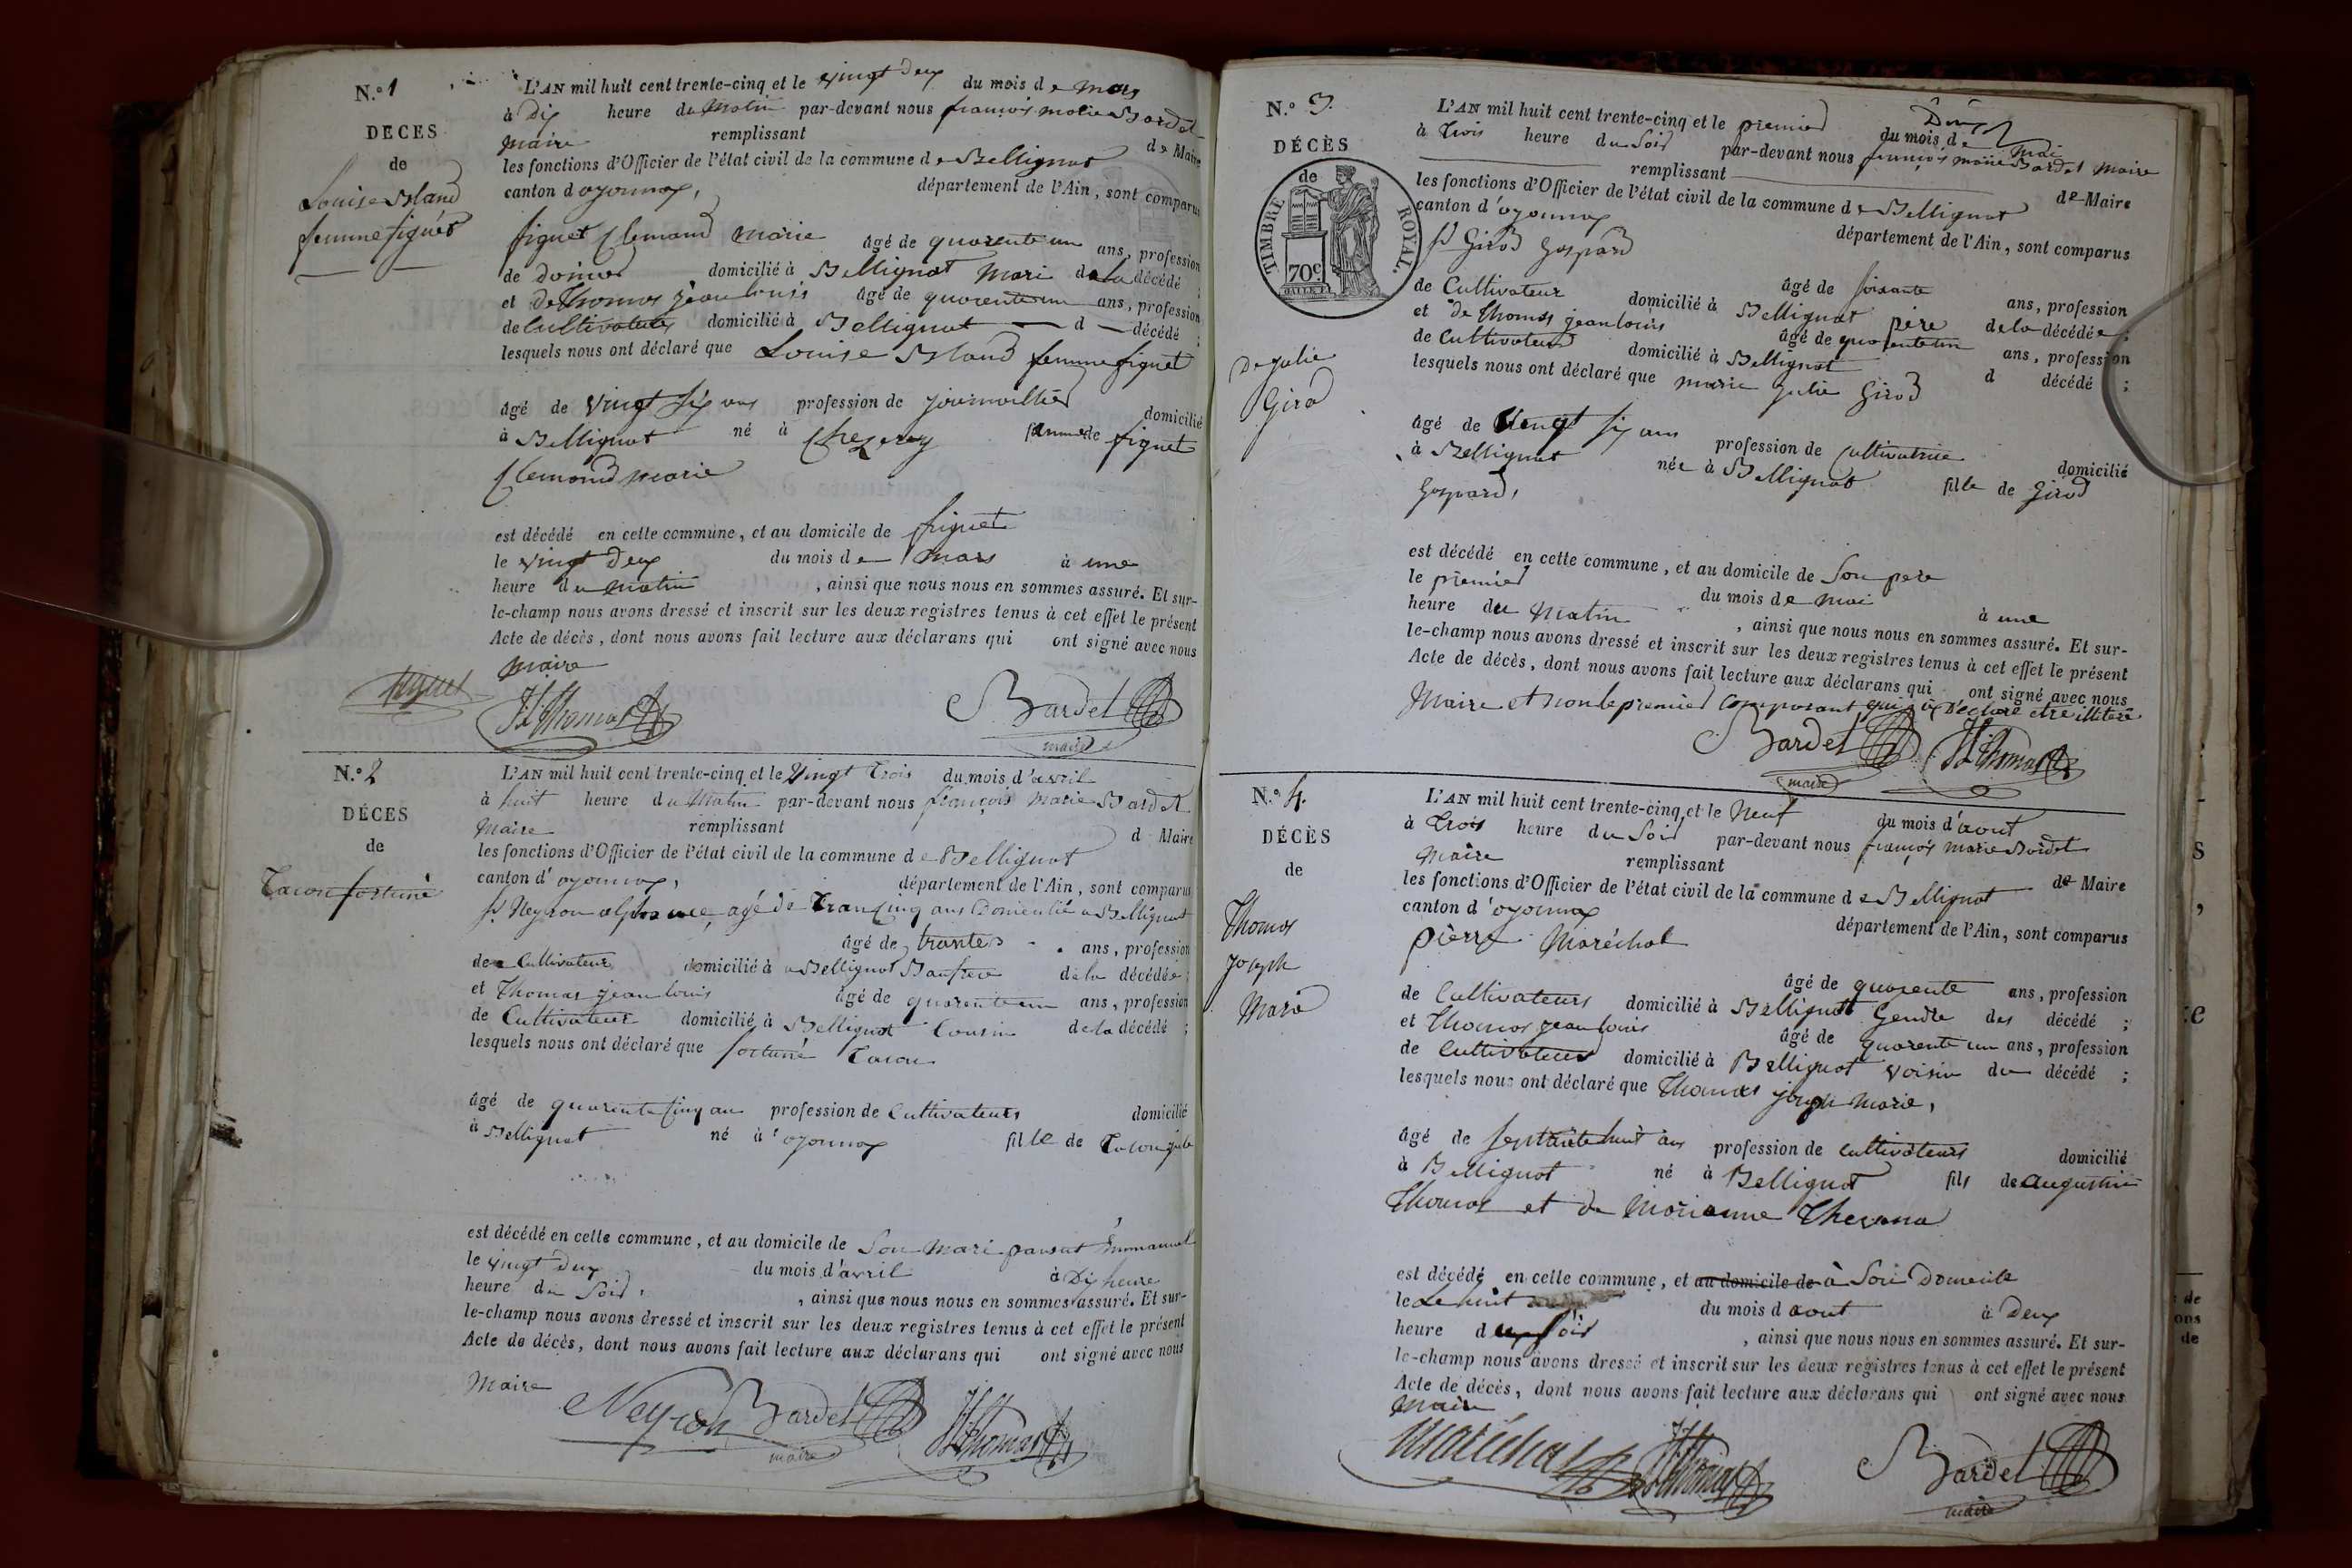 N.º 1
DÉCES
de
Louise Bland
femme figuet
L'AN mil huit cent trente-cinq et le vingt deux du mois de mars
à Dix heure du Matin par-devant nous françois marie Bardet
Maire remplissant de Maire
les fonctions d'Officier de l'état civil de la commune de Bellignat
canton d'oyonnax, département de l'Ain, sont comparus
figuet Clemand Marie âgé de quarente un ans, profession
de domicilié à Bellignat Mari de la décédé ;
et de Thomas jean louis âgé de quarente un ans, profession
de Cultivateur domicilié à Bellignat d décédé ;
lesquels nous ont déclaré que Louise Bland femme figuet
âgé de vingt six ans profession de journaillier domicilié
à Bellignat né à Chezery femme de figuet
Clemand Marie
est décédé en cette commune, et au domicile de figuet
le vingt deux du mois de Mars à une
heure du matin , ainsi que nous nous en sommes assuré. Et sur-
le-champ nous avons dressé et inscrit sur les deux registres tenus à cet effet le présent
Acte de décès, dont nous avons fait lecture aux déclarans qui ont signé avec nous
Maire
figuet JL Thomas Bardet
maire
N.º 2
DÉCES
de
Tacon fortuné
L'AN mil huit cent trente-cinq et le Vingt trois du mois d'avril
à huit heure du Matin par-devant nous françois Marie Bardet
Maire remplissant d Maire
les fonctions d'Officier de l'état civil de la commune de Bellignat
canton d'oyonnax, département de l'Ain, sont comparus
sr Neyron alphonce, agé de Domicilié a Bellignat
âgé de trante ans, profession
de Cultivateur domicilié à Bellignat Baufrere de la décédée ;
et Thomas jean louis âgé de quarente un ans, profession
de Cultivateur domicilié à Bellignat Cousin de la décédé ;
lesquels nous ont déclaré que fortuné Tacon
âgé de quarente cinq ans profession de Cultivateurs domicilié
à Bellignat né à oyonnax fille de Tacon
est décédé en cette commune, et au domicile de Son Mari pansut Emmanuel
le vingt deux du mois d'avril à Dix heure
heure du Soir, , ainsi que nous nous en sommes assuré. Et sur-
le-champ nous avons dressé et inscrit sur les deux registres tenus à cet effet le présent
Acte de décès, dont nous avons fait lecture aux déclarans qui ont signé avec nous
Maire
Neyron Bardet JL Thomas
maire
N.º 3.
DÉCÈS
de
TIMBRE ROYAL.
70c.
De julie
Girod
L'AN mil huit cent trente-cinq et le premier du mois de Mai
à trois heure du Soir par-devant nous françois marie Bardet Maire
remplissant de Maire
les fonctions d'Officier de l'état civil de la commune de Bellignat
canton d'oyonnax département de l'Ain, sont comparus
sr Girod Gaspard âgé de soixante ans, profession
de Cultivateur domicilié à Bellignat père de la décédée ;
et de Thomas jean louis âgé de quarente un ans, profession
de Cultivateur domicilié à Bellignat d décédé ;
lesquels nous ont déclaré que marie julie Girod
âgé de Vingt six ans profession de Cultivatrice domicilié
à Bellignat née à Bellignat fille de Girod
Gaspard,
est décédé en cette commune, et au domicile de Son pere
le premier du mois de mai à une
heure du Matin , ainsi que nous nous en sommes assuré. Et sur-
le-champ nous avons dressé et inscrit sur les deux registres tenus à cet effet le présent
Acte de décès, dont nous avons fait lecture aux déclarans qui ont signé avec nous
Maire et non le premier Comparant qui a Déclaré etre illiteré
Bardet JL Thomas
maire
N.º 4.
DÉCÈS
de
Thomas
Joseph
Marie
L'AN mil huit cent trente-cinq et le Neuf du mois d'aout
à trois heure du Soir par-devant nous françois marie Bardet
Maire remplissant de Maire
les fonctions d'Officier de l'état civil de la commune de Bellignat
canton d'oyonnax département de l'Ain, sont comparus
pierre Maréchal âgé de quarente ans, profession
de Cultivateurs domicilié à Bellignat Gendre du décédé ;
et Thomas jean louis âgé de quarente un ans, profession
de Cultivateur domicilié à Bellignat voisin du décédé ;
lesquels nous ont déclaré que Thomas joseph Marie,
âgé de septante huit ans profession de cultivateurs domicilié
à Bellignat né à Bellignat fils de augustin
Thomas et de Morianne Thevena
est décédé en cette commune, et au domicile de à Son Domicile
le Le huit du mois d aout à Deux
heure du Soir , ainsi que nous nous en sommes assuré. Et sur-
le-champ nous avons dressé et inscrit sur les deux registres tenus à cet effet le présent
Acte de décès, dont nous avons fait lecture aux déclarans qui ont signé avec nous
Maire
Maréchal JL Thomas Bardet
maire